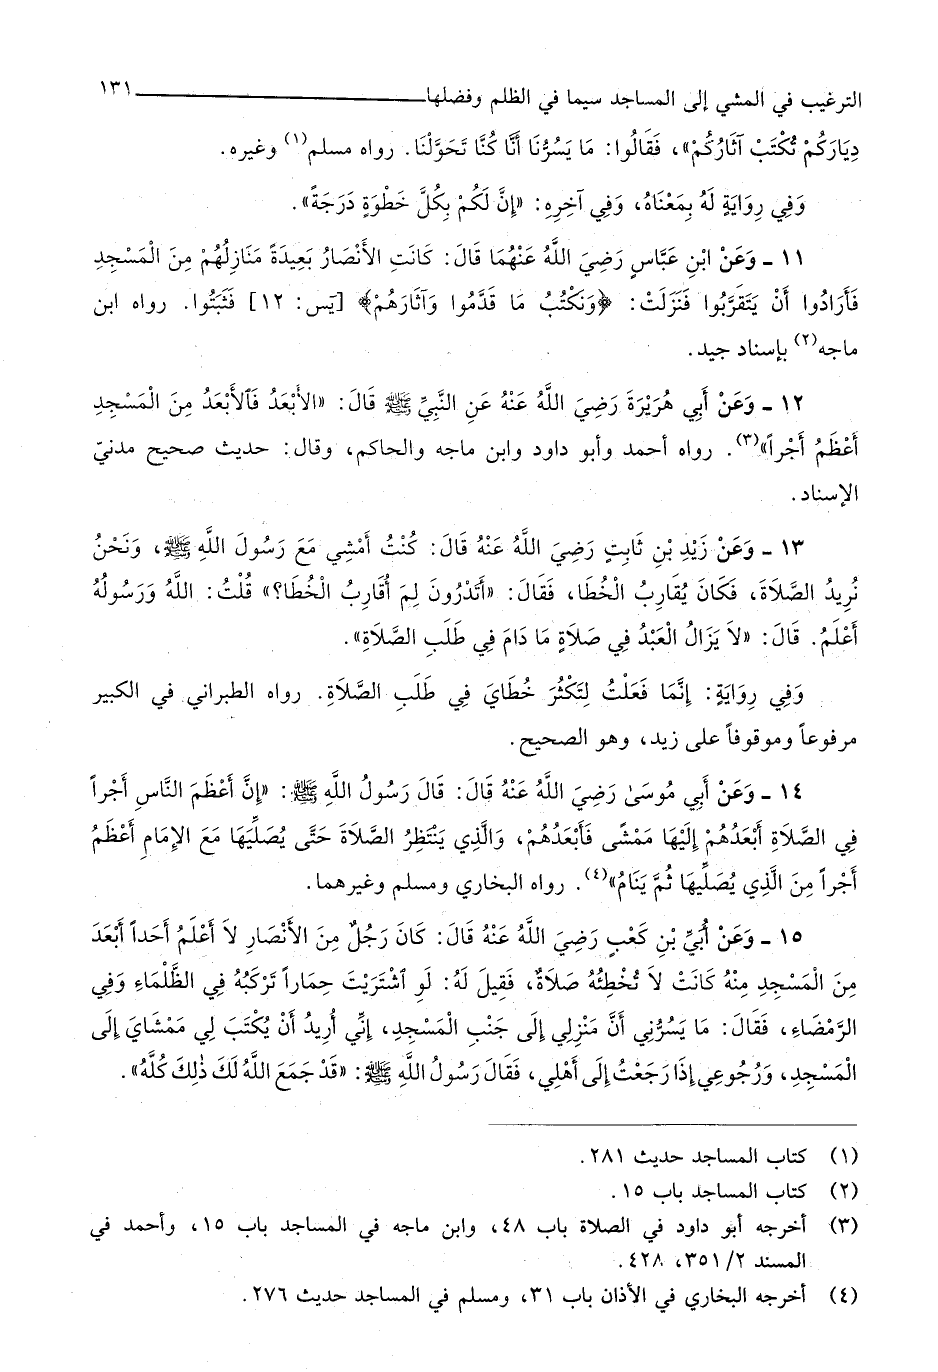 الترغيب في المشي إلى المساجد سيما في الظلم وفضلها ١٣١
دِيَارَكُمْ تُكْتَبْ آثَارُكُمْ»، فَقَالُوا: مَا يَسُرُّنَا أَنَّا كُنَّا تَحَوَّلْنَا. رواه مسلم(١) وغيره.
وَفِي رِوَايَةٍ لَهُ بِمَعْنَاهُ، وَفِي آخِرِهِ: «إِنَّ لَكُمْ بِكُلِّ خَطْوَةٍ دَرَجَةً».
١١ ـ وَعَنْ ابْنِ عَبَّاسٍ رَضِيَ اللَّهُ عَنْهُمَا قَالَ: كَانَتِ الأَنْصَارُ بَعِيدَةً مَنَازِلُهُمْ مِنَ الْمَسْجِدِ
فَأَرَادُوا أَنْ يَتَقَرَّبُوا فَنَزَلَتْ: ﴿وَنَكْتُبُ مَا قَدَّمُوا وَآثَارَهُمْ﴾ [يٓس: ١٢] فَثَبَتُوا. رواه ابن
ماجه(٢) بإسناد جيد.
١٢ ـ وَعَنْ أَبِي هُرَيْرَةَ رَضِيَ اللَّهُ عَنْهُ عَنِ النَّبِيِّ ﷺ قَالَ: «الأَبْعَدُ فَٱلأَبْعَدُ مِنَ الْمَسْجِدِ
أَعْظَمُ أَجْراً»(٣). رواه أحمد وأبو داود وابن ماجه والحاكم، وقال: حديث صحيح مدنيّ
الإسناد.
١٣ ـ وَعَنْ زَيْدِ بْنِ ثَابِتٍ رَضِيَ اللَّهُ عَنْهُ قَالَ: كُنْتُ أَمْشِي مَعَ رَسُولَ اللَّهِ ﷺ، وَنَحْنُ
نُرِيدُ الصَّلَاةَ، فَكَانَ يُقَارِبُ الْخُطَا، فَقَالَ: «أَتَدْرُونَ لِمَ أُقَارِبُ الْخُطَا؟» قُلْتُ: اللَّهُ وَرَسُولُهُ
أَعْلَمُ. قَالَ: «لاَ يَزَالُ الْعَبْدُ فِي صَلَاةٍ مَا دَامَ فِي طَلَبِ الصَّلَاةِ».
وَفِي رِوَايَةٍ: إِنَّمَا فَعَلْتُ لِتَكْثُرَ خُطَايَ فِي طَلَبِ الصَّلَاةِ. رواه الطبراني في الكبير
مرفوعاً وموقوفاً على زيد، وهو الصحيح.
١٤ ـ وَعَنْ أَبِي مُوسَىٰ رَضِيَ اللَّهُ عَنْهُ قَالَ: قَالَ رَسُولُ اللَّهِ ﷺ: «إِنَّ أَعْظَمَ النَّاسِ أَجْراً
فِي الصَّلَاةِ أَبْعَدُهُمْ إِلَيْهَا مَمْشًى فَأَبْعَدُهُمْ، وَالَّذِي يَنْتَظِرُ الصَّلَاةَ حَتَّى يُصَلِّيَهَا مَعَ الإِمَامِ أَعْظَمُ
أَجْراً مِنَ الَّذِي يُصَلِّيهَا ثُمَّ يَنَامُ»(٤). رواه البخاري ومسلم وغيرهما.
١٥ ـ وَعَنْ أُبَيِّ بْنِ كَعْبٍ رَضِيَ اللَّهُ عَنْهُ قَالَ: كَانَ رَجُلٌ مِنَ الأَنْصَارِ لاَ أَعْلَمُ أَحَداً أَبْعَدَ
مِنَ الْمَسْجِدِ مِنْهُ كَانَتْ لاَ تُخْطِئُهُ صَلَاةٌ، فَقِيلَ لَهُ: لَوِ ٱشْتَرَيْتَ حِمَاراً تَرْكَبُهُ فِي الظَّلْمَاءِ وَفِي
الرَّمْضَاءِ، فَقَالَ: مَا يَسُرُّنِي أَنَّ مَنْزِلِي إِلَى جَنْبِ الْمَسْجِدِ، إِنِّي أُرِيدُ أَنْ يُكْتَبَ لِي مَمْشَايَ إِلَى
الْمَسْجِدِ، وَرُجُوعِي إِذَا رَجَعْتُ إِلَى أَهْلِي، فَقَالَ رَسُولُ اللَّهِ ﷺ: «قَدْ جَمَعَ اللَّهُ لَكَ ذٰلِكَ كُلَّهُ».
(١) كتاب المساجد حديث ٢٨١.
(٢) كتاب المساجد باب ١٥.
(٣) أخرجه أبو داود في الصلاة باب ٤٨، وابن ماجه في المساجد باب ١٥، وأحمد في
المسند ٢/ ٣٥١، ٤٢٨.
(٤) أخرجه البخاري في الأذان باب ٣١، ومسلم في المساجد حديث ٢٧٦.